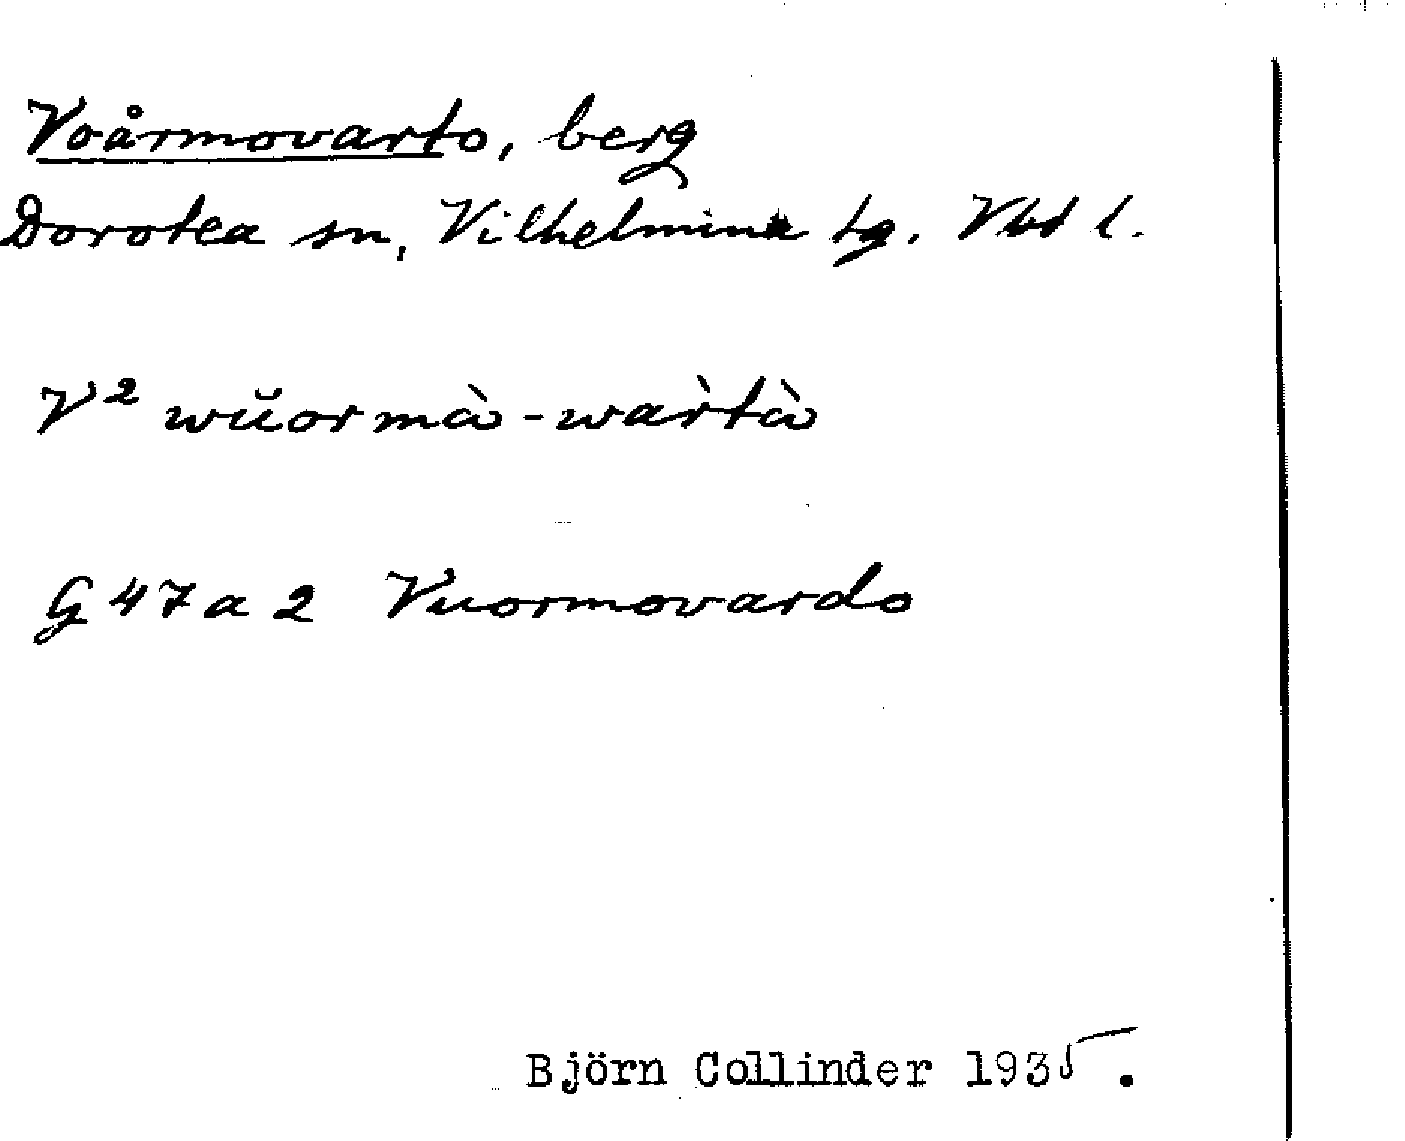 Voårmovarto, berg
Dorotea sn, Vilhelmina tg. Vbt l.
V² wŭormà-war̀tà
G 47 a 2 Vuormovardo
Björn Collinder 1935.